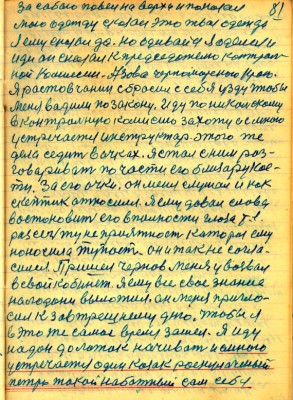 81
За собаю повел на верхъ и показал
мою одежду сказал это твая одежда
Я ему сказал да. но одивай и
иди он сказал к председателю контрол-
ной комиссии. Азова черноморского края.
Я растовчанин сбросил с себя узду чтобы
меня вадили по закону. Иду по никалскому
в контролную комисию захожу и самною
устречаетъ инструктар. этого же
дела седит в очках. Я стал с ним раз-
говаривать по части его
За его очки. он меня слушал и как
скептик относился. Я ему давал слова
востоновит его вполности глаза т.е.
разсеять ту неприятност каторая ему
наносила тупост. он итак не согла-
сился. Пришел чернов меня узвал
в свой кобинет. Я ему все свое знание
на лодони выложил. он меня пригло-
сил к завтрешнему дню. чтобы я
в это же самое время зашел. Я иду
на дон до лотак начиват и самною
устречаетъ один козак
петръ такой набожный сам себе